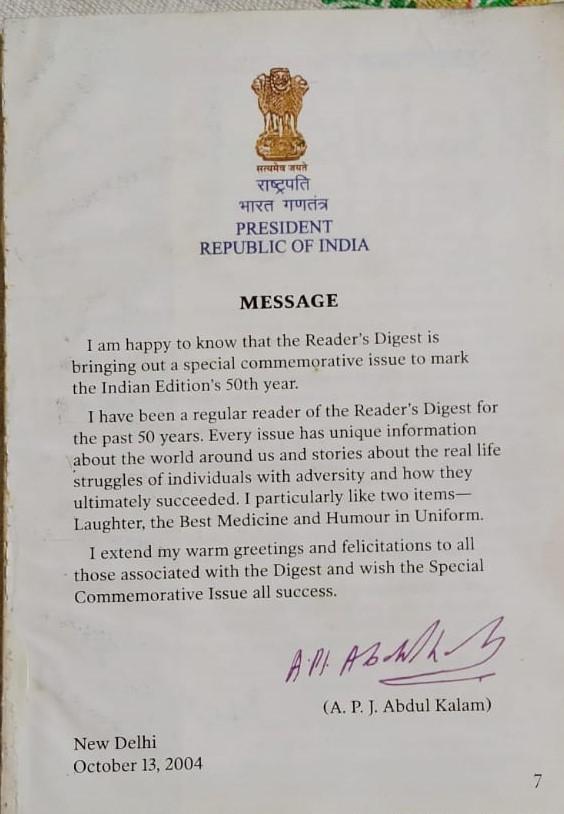 सत्यमेव जयते
राष्ट्रपति
भारत गणतंत्र
PRESIDENT
REPUBLIC OF INDIA
MESSAGE
I am happy to know that the Reader's Digest is
bringing out a special commemorative issue to mark
the Indian Edition's 50th year.
I have been a regular reader of the Reader's Digest for
the past 50 years. Every issue has unique information
about the world around us and stories about the real life
struggles of individuals with adversity and how they
ultimately succeeded. I particularly like two items—
Laughter, the Best Medicine and Humour in Uniform.
I extend my warm greetings and felicitations to all
those associated with the Digest and wish the Special
Commemorative Issue all success.
(A. P. J. Abdul Kalam)
New Delhi
October 13, 2004
7